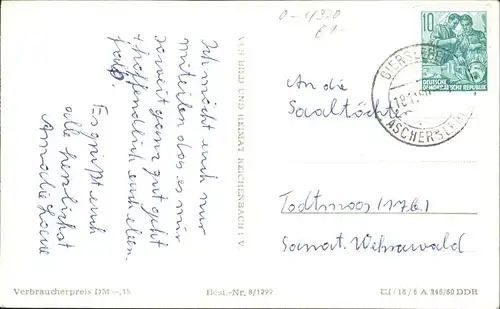 O-4320
€1-
Ich möcht euch nur
mitteilen das es mir
soweit ganz gut geht
+ hoffendlich euch eben
falls.
Es grüßt euch
alle herzlichst
Amalie
VEB BILD UND HEIMAT REICHENBACH i. V.
10
DEUTSCHE
DEMOKRATISCHE REPUBLIK
GIERSLEBEN
18.1.
ASCHERSLEBEN
An die
Saaltöchter
Todtmoos (17b)
Sanat. Wehrawald
Verbraucherpreis DM -,15
Best.-Nr. 8/1299
III/18/6 A 346/60 DDR